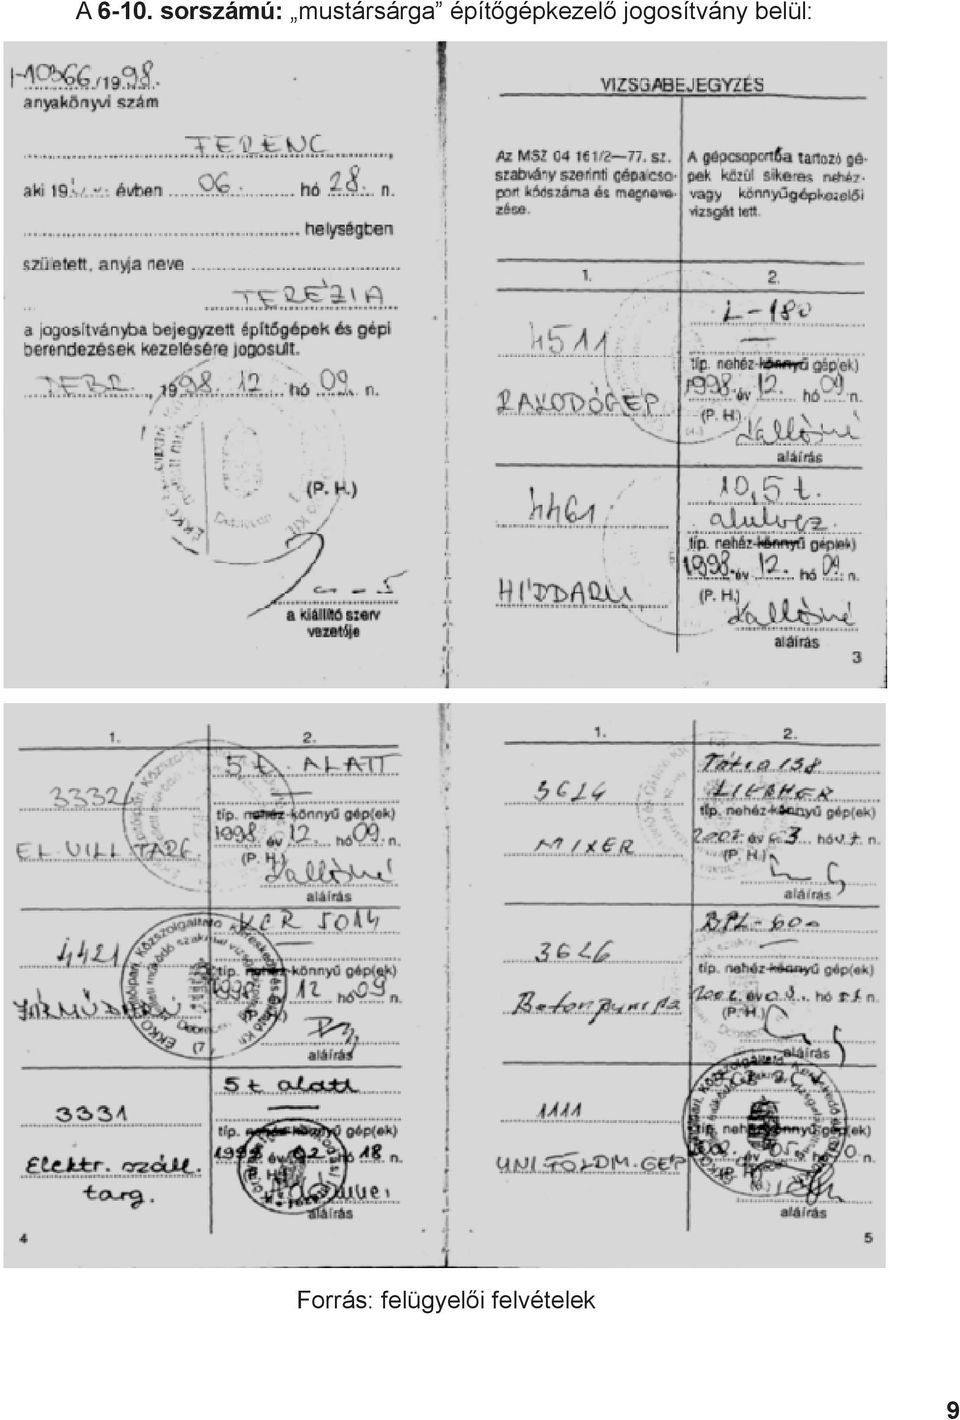 A 6-10. sorszámú: „mustársárga” építőgépkezelő jogosítvány belül:
I-10366/1998.
anyakönyvi szám
FERENC
aki 19 évben 06. hó 28. n.
helységben
született, anyja neve
TERÉZIA
a jogosítványba bejegyzett építőgépek és gépi
berendezések kezelésére jogosult.
DEBR., 1998. 12. hó 09. n.
(P. H.)
a kiállító szerv
vezetője
VIZSGABEJEGYZÉS
Az MSZ 04 161/2—77. sz.
szabvány szerinti gépalcso-
port kódszáma és megneve-
zése.
A gépcsoportba tartozó gé-
pek közül sikeres nehéz-
vagy könnyűgépkezelői
vizsgát tett.
1. 2.
4511
RAKODÓGÉP
L-180
típ. nehéz-könnyű gép(ek)
1998. év 12. hó 09. n.
(P. H.)
Kallóné
aláírás
4461
HÍDDARU
10,5 t.
alulvez.
típ. nehéz-könnyű gép(ek)
1998. év 12. hó 09. n.
(P. H.)
Kallóné
aláírás
3
1. 2.
3332
EL. VILL. TARG.
5 t. ALATT
típ. nehéz-könnyű gép(ek)
1998 év 12. hó 09. n.
(P. H.)
Kallóné
aláírás
4421
JÁRMŰDARU
KCR 5014
típ. nehéz-könnyű gép(ek)
1998 12 hó 09 n.
aláírás
3331
Elektr. száll.
targ.
5 t alatt
típ. nehéz-könnyű gép(ek)
1999 év 02 hó 18 n.
(P. H.)
aláírás
4
1. 2.
3624
MIXER
Tátra 138
LIEBHER
típ. nehéz-könnyű gép(ek)
(P. H.)
aláírás
3626
Betonpumpa
BPL-600
típ. nehéz-könnyű gép(ek)
(P. H.)
aláírás
1111
UNI. FÖLDM. GÉP
típ. nehéz-könnyű gép(ek)
aláírás
5
Forrás: felügyelői felvételek
9